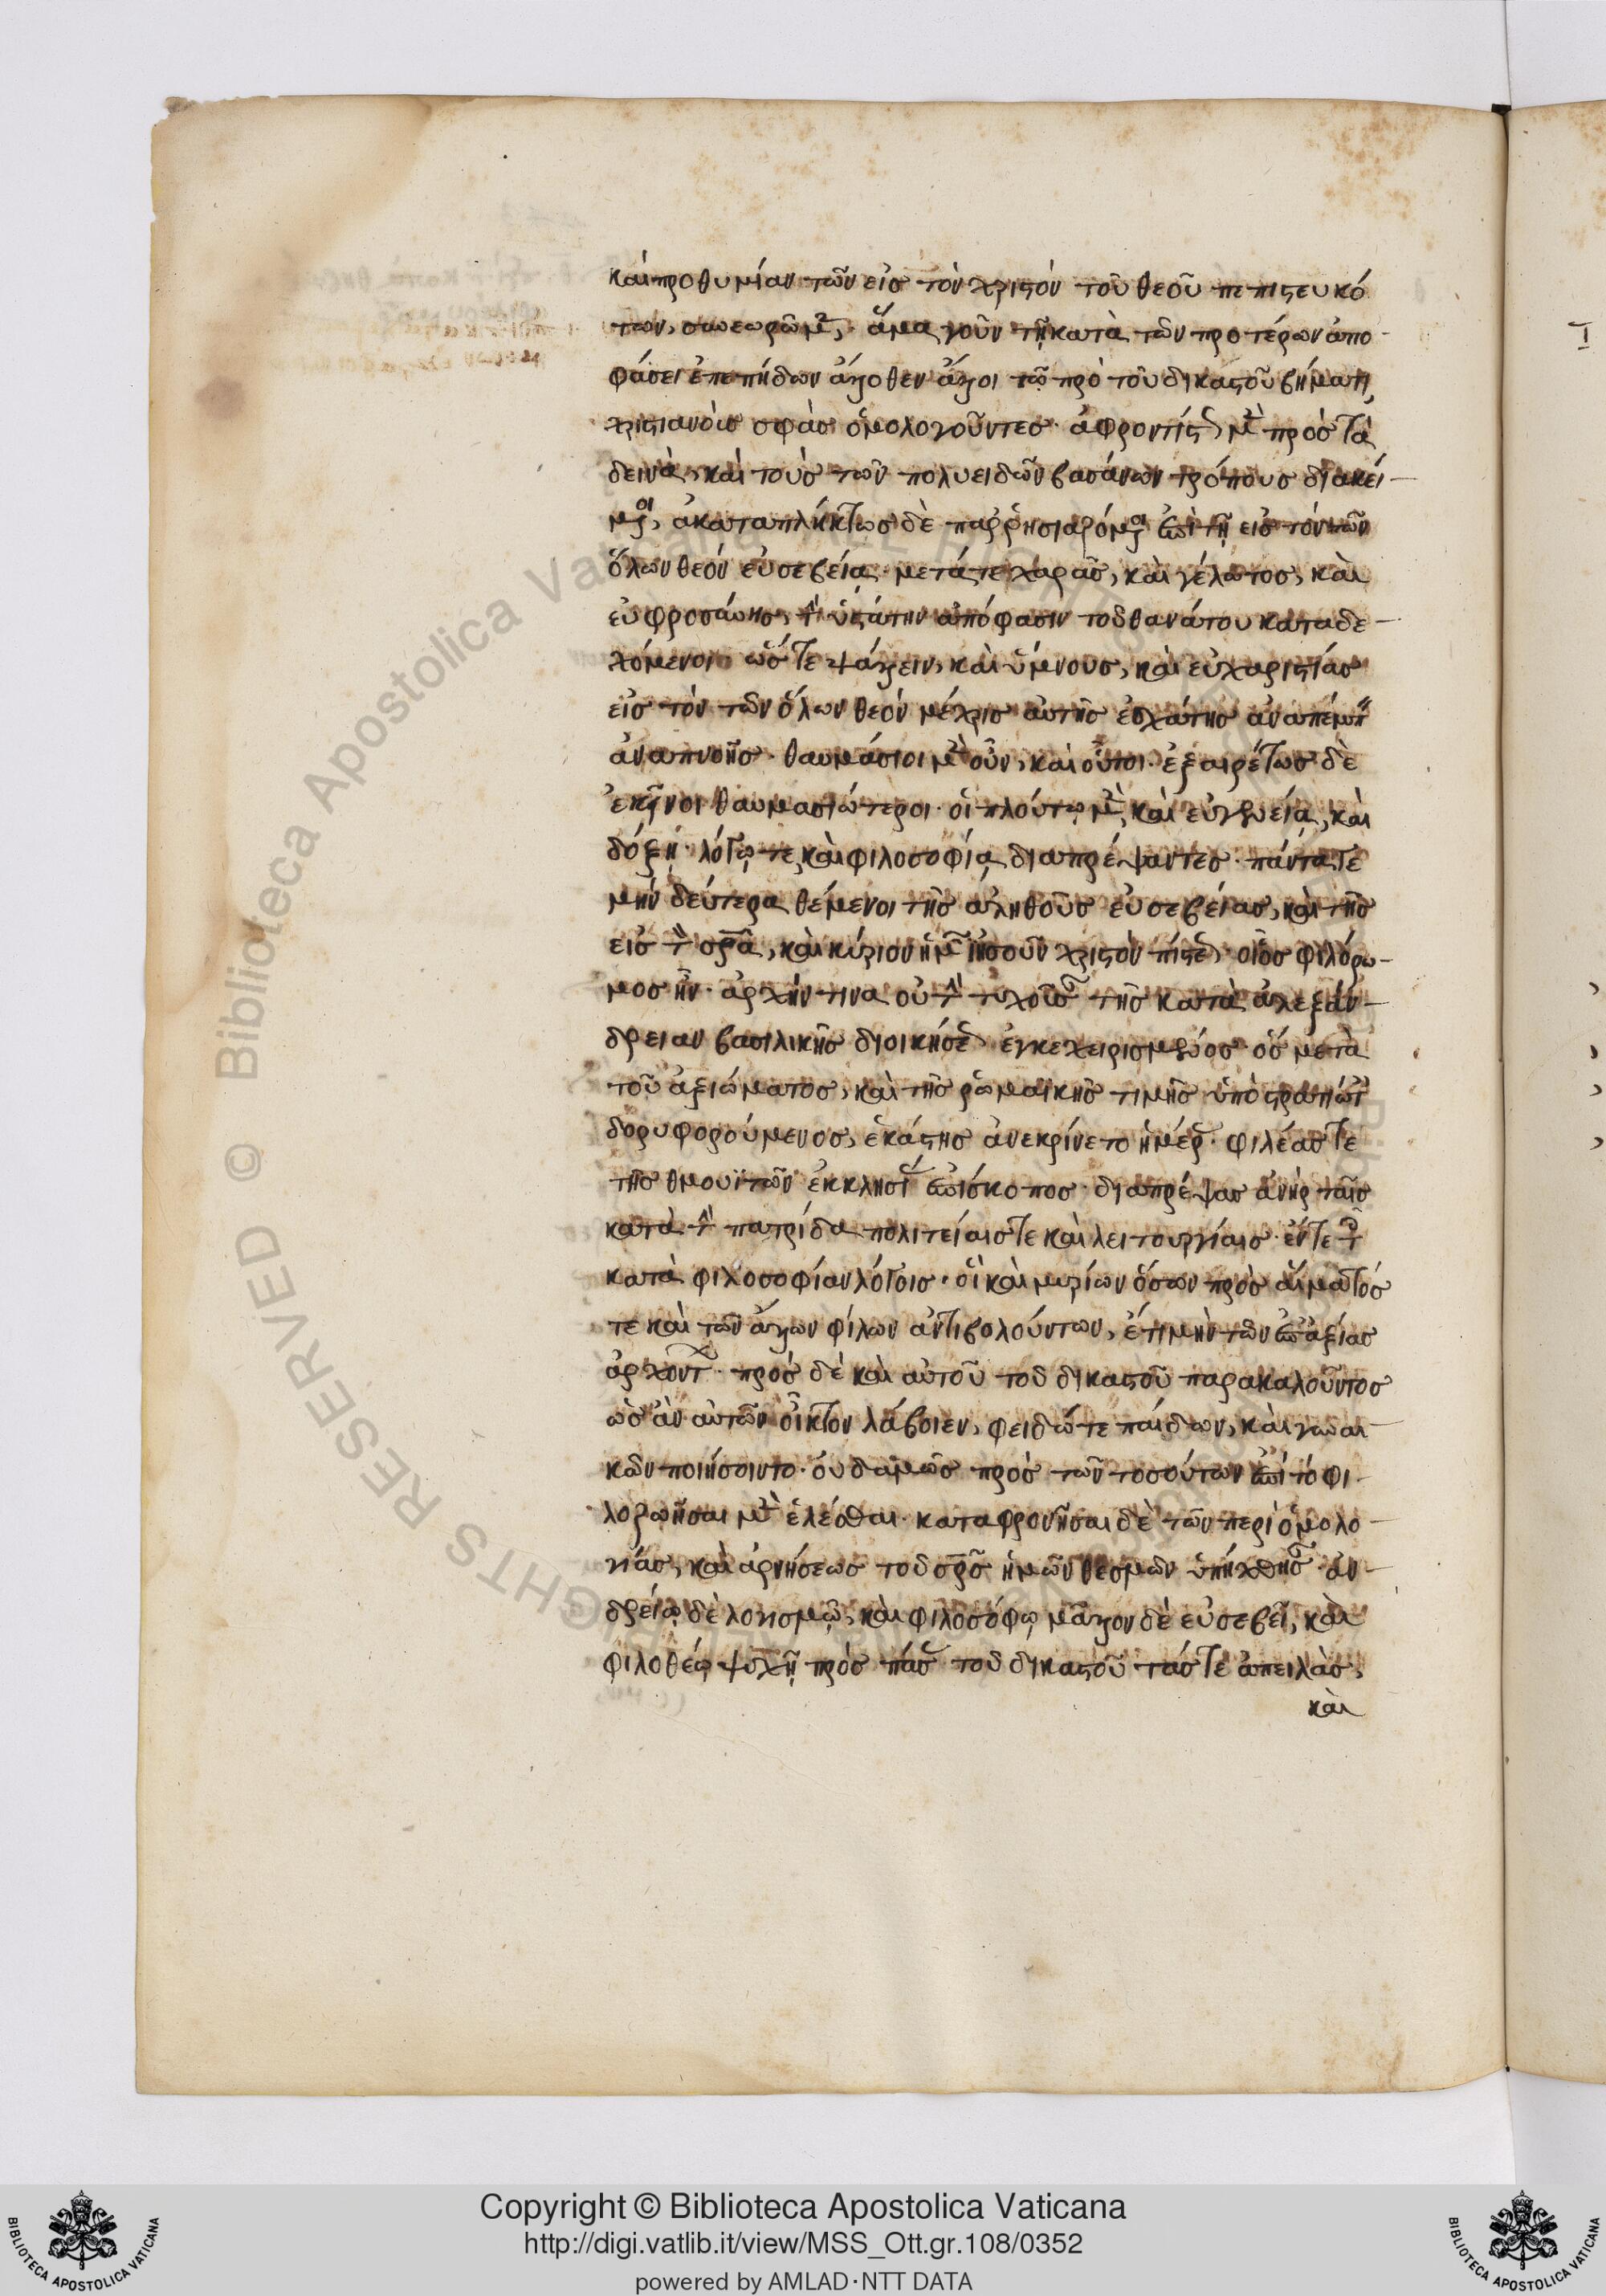 καὶ προθυμίαν τῶν εἰς τὸν χριστὸν τοῦ θεοῦ πεπιστευκό
των, συνεωρῶμεν, ἅμα γοῦν τῆ κατὰ τῶν προτέρων ἀπο-
φάσει ἐπεπήδων ἄλλοθεν ἄλλοι τῶ πρὸ τοῦ δικαστοῦ βήματι,
χριστιανοὺς σφᾶς ὁμολογοῦντες· ἀφροντίστως μὲν πρὸς τὰ
δεινὰ, καὶ τοὺς τῶν πολυειδῶν βασάνων τρόπους διακεί-
μενοι, ἀκαταπλήκτως δὲ παρρησιαζόμενοι ἐπὶ τῆ εἰς τὸν τῶν
ὅλων θεὸν εὐσεβεία· μετά τε χαρᾶς, καὶ γέλωτος, καὶ
εὐφροσύνης, τὴν ὑστάτην ἀπόφασιν τοῦ θανάτου καταδε-
χόμενοι ὥστε ψάλλειν, καὶ ὕμνους, καὶ εὐχαριστίας
εἰς τὸν τῶν ὅλων θεὸν μέχρις αὐτῆς ἐσχάτης ἀναπέμπειν
ἀναπνοῆς· θαυμάσιοι μὲν οὖν, καὶ οὗτοι· ἐξαιρέτως δὲ
ἐκεῖνοι θαυμασιώτεροι· οἱ πλούτω μὲν, καὶ εὐγενεία, καὶ
δόξη· λόγω τε, καὶ φιλοσοφία διαπρέψαντες· πάντα γε
μὴν δεύτερα θέμενοι τῆς ἀληθοῦς εὐσεβείας, καὶ τῆς
εἰς τὸν σρα, καὶ κύριον ἡμῶν ἰησοῦν χριστὸν πίστεως· οἷος φιλόρω-
μος ἦν· ἀρχήν τινα οὐ τὴν τυχοῦσαν τῆς κατὰ ἀλεξάν-
δρειαν βασιλικῆς διοικήσεως ἐγκεχειρισμένος· ὃς μετὰ
τοῦ ἀξιώματος, καὶ τῆς ῥωμαϊκῆς τιμῆς ὑπὸ στρατιώταις
δορυφορούμενος, ἑκάστης ἀνεκρίνετο ἡμέρας· φιλέας τε
τῆς θμουϊτῶν ἐκκλησίας ἐπίσκοπος· διαπρέψας ἀνὴρ ταῖς
κατὰ τὴν πατρίδα πολιτείαις τε καὶ λειτουργίαις· ἔν τε τοῖς
κατὰ φιλοσοφίαν λόγοις· οἳ καὶ μυρίων ὅσων πρὸς αἵματός
τε καὶ τῶν ἄλλων φίλων ἀντιβολούντων, ἔτι μὴν τῶν ἐπ' ἀξίας
ἀρχόντων· πρὸς δὲ καὶ αὐτοῦ τοῦ δικαστοῦ παρακαλοῦντος
ὡς ἂν αὐτῶν οἶκτον λάβοιεν, φειδώ τε παίδων, καὶ γυναι-
κῶν ποιήσοιντο· οὐδαμῶς πρὸς τῶν τοσούτων ἐπὶ τὸ φι-
λοζωῆσαι μὲν ἑλέσθαι· καταφρονῆσαι δὲ τῶν περὶ ὁμολο-
γίας, καὶ ἀρνήσεως τοῦ σρς ἡμῶν θεσμῶν ὑπήχθησαν· ἀν-
δρείω δὲ λογισμῶ, καὶ φιλοσόφω μᾶλλον δὲ εὐσεβεῖ, καὶ
φιλοθέω ψυχῆ πρὸς πάσας τοῦ δικαστοῦ τάς τε ἀπειλὰς,
καὶ
Copyright © Biblioteca Apostolica Vaticana
http://digi.vatlib.it/view/MSS_Ott.gr.108/0352
powered by AMLAD·NTT DATA